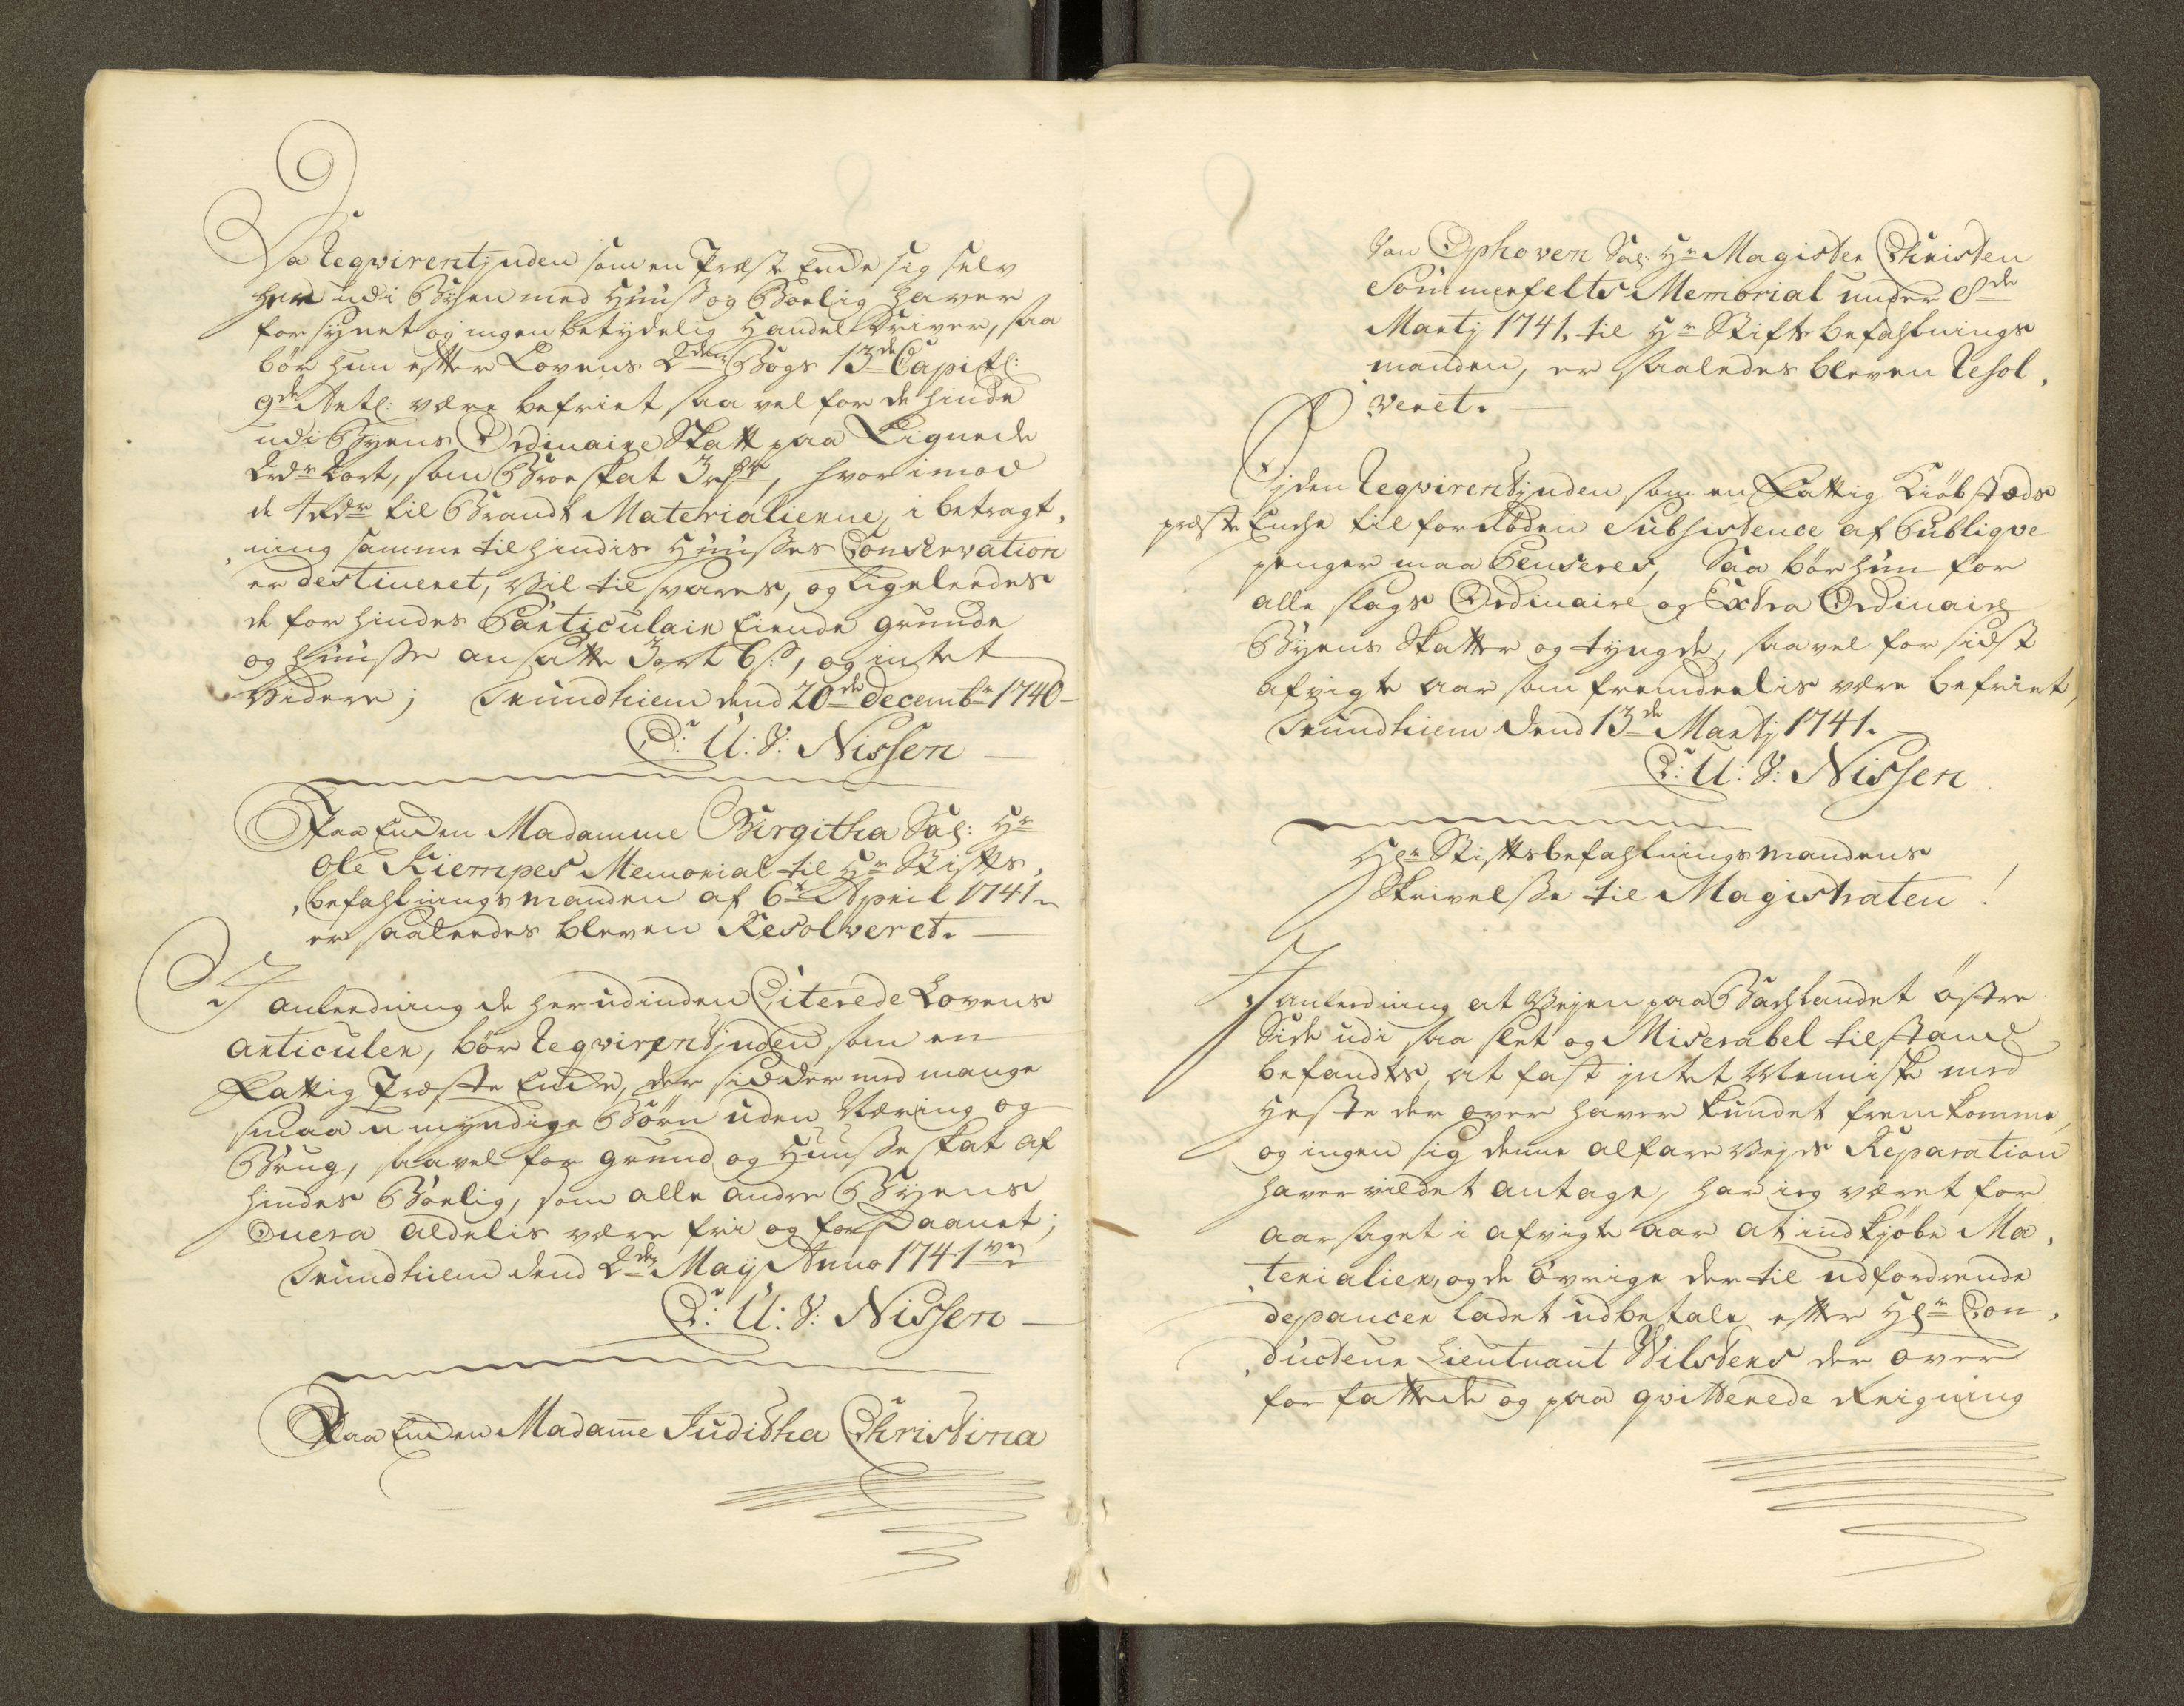 Da Reqvirentjnden som en Præste Encke sig selv
her udi Byen med Huus og Boelig haver
forsynet og ingen betydelig Handel driver, saa
bør hun efter Lovens 2den Bogs 13de Capitl:
9de Artl: være befriet saavel for de hinde
udi Byens Ordinaire Skatt paa Lignede
2 rdr 2 ort, som Broeskat 3 ort, hvorimod
de 4 rdr til Brandt Materialierne, i betragt,
,ning samme til hindis Huuses Conservation
er destineret, vil tilsvares, og ligeleedes
de for hindes Particulair Eiende Grunde
og Huuse ansatte 3 ort 6 s:, og intet
Videre; Trundhiem dend 20de Decembr 1740 –
C: U: V: Nissen –
Paa Encken Madamme Birgitha Sal: Hr
Ole Kiempes Memorial til Hr Stifts,
,befahlningsmanden af 6te April 1741.
er saaleedes bleven Resolveret. –
I anleedning de herudinden Citerede Lovens
Articuler, bør Reqvirentjnden som en
Fattig Præste Encke, der sidder med mange
smaa umyndige Børn uden Næring og
Brug, saavel for Grund og Huuse skat af
hindes Boelig, som alle andre Byens
Onera aldelis være fri og forskaanet;
Trundhiem dend 2den Maij Anno 1741
C: U: V: Nissen –
Paa Encken Madame Juditha Christina
Von Ophoven Sal: Hr Magister Christen
Sommerfelts Memorial under 8de
Martj 1741. til Hr Stiftsbefahlnings
manden, er saaledes bleven Resol,
,veret. –
Siden Reqvirentjnden som en Fattig Kiøbstæds
præste Encke til fornøden Subsistence af Publiqve
penger maa Penseres, Saa bør hun for
alle slags Ordinaire og Extra Ordinaire
Byens Skatter og tyngde, saavel for sidst
afvigte aar som fremdeelis være befriet,
Trundhiem dend 13de Martj 1741.
C: U: V: Nissen
Hr Stiftsbefahlningsmandens
Skrivelse til Magistraten!
I anleedning at Veyen paa Bachlandet østre
Side udi saa slet og Miserabel tilstand
befandtes, at fast intet Menniske med
Heste der over haver kundet fremkomme,
og ingen sig denne alfare Veyes Reparation
haver vildet antage, har ieg været for
aarsaget i afvigte aar at indkjøbe Ma,
,terialier, og de øvrige der til udfordrende
depancer ladet udbetale efter Hr Con,
,ducteur Lieutnant Wilsters der over
forfattede og paa qvitterede Reigning